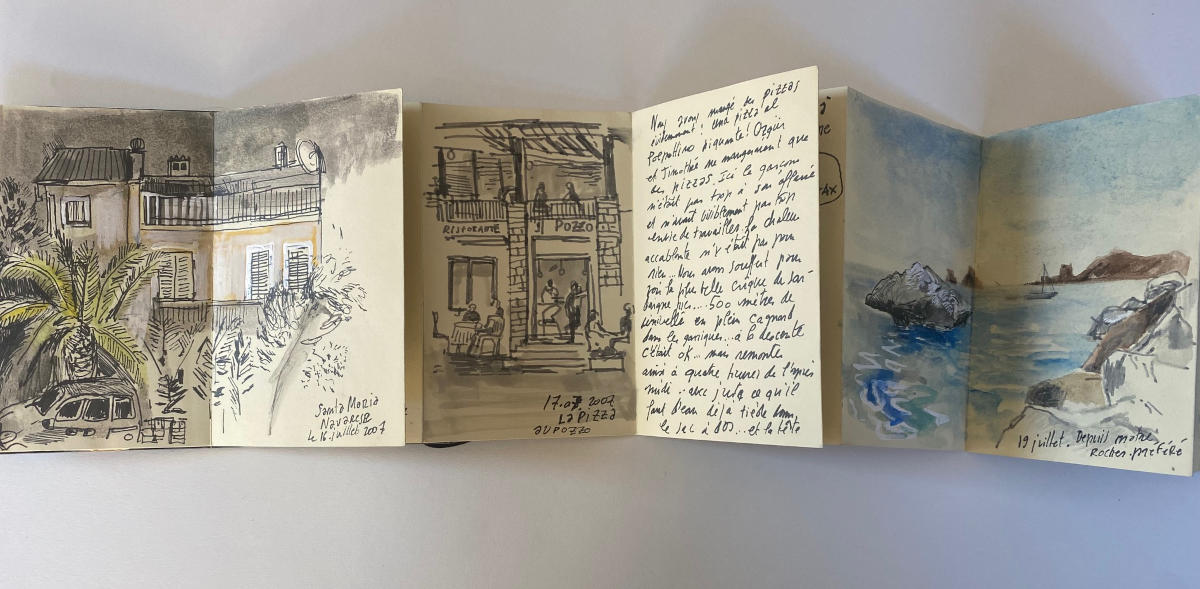 Santa Maria
Navarese
le 16 juillet 2007
RISTORANTE
Il POZZO
17.07 2007
LA PIZZA
AU POZZO
Nous avons mangé des pizzas
évidemment! Una pizza al
Polpettino piquante! Ozgür
et Timothée ne mangeraient que
des pizzas. Ici le garçon
n'était pas trop à son affaire
et n'avait visiblement pas trop
envie de travailler. La chaleur
accablante n'y était pas pour
rien... Nous avons souffert pour
voir la plus belle crique de Sar-
daigne 500 mètres de
dénivellé en plein cagnard
dans les garrigues... à la descente
c'était ok... mais remonter
ainsi à quatre heures de l'après
midi.. avec juste ce qu'il
faut d'eau déjà tiède dans
le sac à dos... et la tête
19 juillet. Depuis notre
Rocher préféré